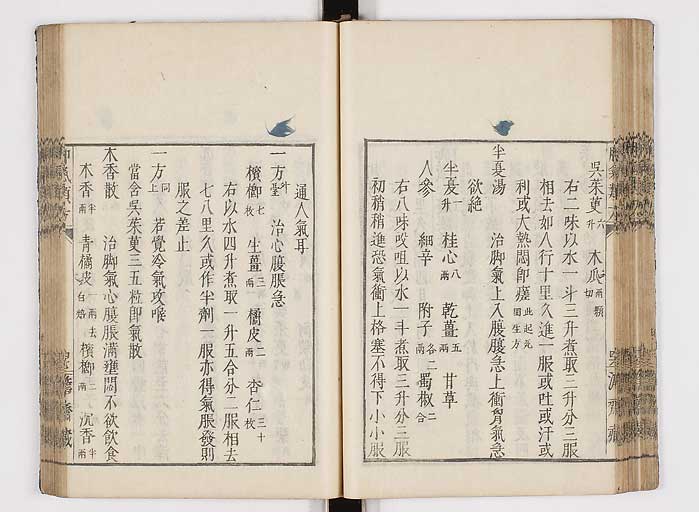 吳茱萸六升 木瓜兩顆切
右二味以水一斗三升煮取三升分三服
相去如人行十里久進一服或吐或汗或
利或大熱悶即瘥此起死回生方
半夏湯 治脚氣上入腹腹急上衝胷氣急
欲絕
半夏一升 桂心八兩 乾薑五兩 甘草
人參 細辛 附子各二兩 蜀椒二合
右八味㕮咀以水一斗煮取三升分三服
初稍稍進恐氣衝上格塞不得下小小服
通人氣耳
一方外臺 治心腹脹急
檳榔七枚 生薑三兩 橘皮二兩 杏仁三十枚
右以水四升煮取一升五合分二服相去
七八里久或作半劑一服亦得氣脹發則
服之差止
一方同上 若覺冷氣攻喉
當含吳茱萸三五粒即氣散
木香散 治脚氣心腹脹滿壅悶不欲飲食
木香半兩 青橘皮一兩去白焙 檳榔二兩 沉香半兩